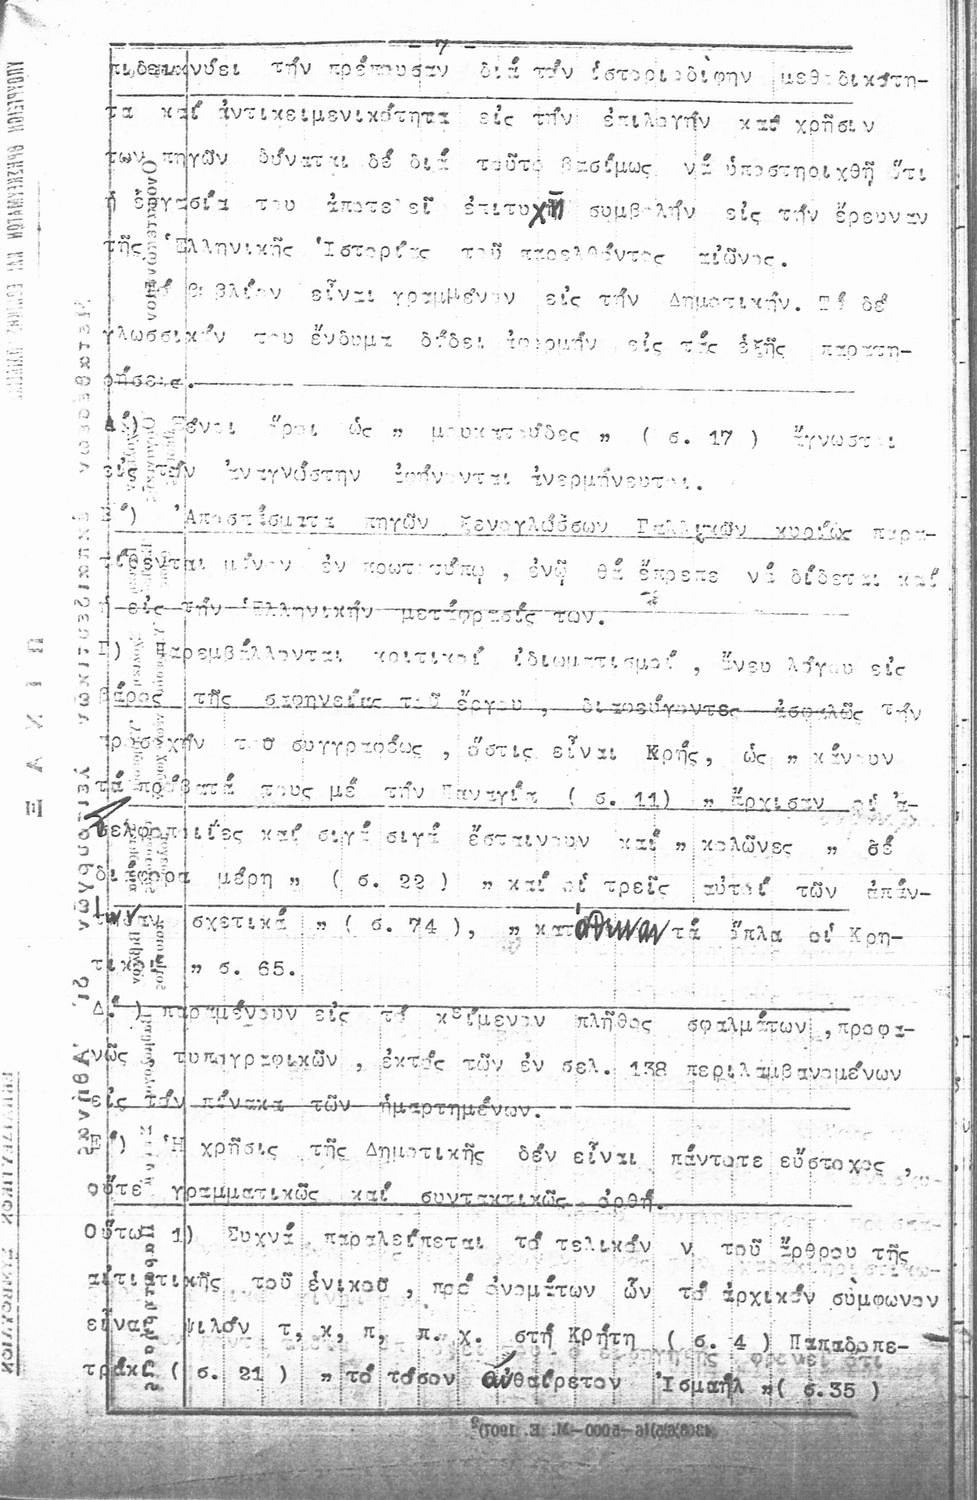 - 7 -
πιδεικνύει τήν πρέπουσαν διά τήν ἱστοριοδίφην μεθοδικότη-
τα καί ἀντικειμενικότητα εἰς τήν ἐπιλογήν καί χρῆσιν
των πηγῶν δύναται δέ διά τοῦτο βασίμως νά ὑποστηριχθῇ ὅτι
ἡ ἐργασία του ἀποτελεῖ ἐπιτυχῆ συμβολήν εἰς τήν ἔρευναν
τῆς Ἑλληνικῆς Ἱστορίας τοῦ παρελθόντος αἰῶνος.
Τό βιβλίον εἶναι γραμμένον εἰς τήν Δημοτικήν. Τό δέ
γλωσσικόν του ἔνδυμα δίδει ἀφορμήν εἰς τάς ἑξῆς παρατη-
ρήσεις.
Α΄) Ξένοι ὅροι ὡς „ μουκατούδες „ ( σ. 17 ) ἄγνωστοι
εἰς τόν ἀναγνώστην ἀφήνονται ἀνερμήνευτοι.
Β΄) Ἀποσπάσματα πηγῶν ξενογλώσσων Γαλλικῶν κυρίως παρα-
τίθενται μόνον ἐν πρωτοτύπῳ , ἐνῷ θά ἔπρεπε νά δίδεται καί
ἡ εἰς τήν Ἑλληνικήν μετάφρασίς των.
Γ) Παρεμβάλλονται κριτικοί ἰδιωματισμοί , ἄνευ λόγου εἰς
βάρος τῆς σαφηνείας τοῦ ἔργου , διαφεύγοντες ἀσφαλῶς τήν
προσοχήν του συγγραφέως , ὅστις εἶναι Κρής, ὡς „ κάνουν
τά πρόβατά τους μέ τήν Παναγία ( σ. 11) „ ἄρχισαν οἱ ἀ-
δελφοποιίες καί σιγά σιγά ἔσταινουν καί „ κολῶνες „ σέ
διάφορα μέρη „ ( σ. 22 ) „ καί οἱ τρεῖς αὐτοί τῶν ἀπάν-
τησαν σχετικά „ ( σ. 74 ), „ κατάθεναν τά ὅπλα οἱ Κρη-
τικοί „ σ. 65.
Δ΄ ) παραμένουν εἰς τό κείμενον πλῆθος σφαλμάτων ,προφα-
νῶς , τυπογραφικῶν , ἐκτός τῶν ἐν σελ. 138 περιλαμβανομένων
εἰς τόν πίνακα τῶν ἡμαρτημένων.
Ε΄) Ἡ χρῆσις τῆς Δημοτικῆς δέν εἶναι πάντοτε εὔστοχος ,
οὔτε γραμματικῶς καί συντακτικῶς ὀρθή.
Οὕτω 1) Συχνά παραλείπεται τό τελικόν ν τοῦ ἄρθρου τῆς
αἰτιατικῆς τοῦ ἑνικοῦ , πρό ὀνομάτων ὧν τό ἀρχικόν σύμφωνον
εἶναι ψιλόν τ, κ, π, π. χ. στή Κρήτη ( σ. 4 ) Παπαδοπε-
τράκι ( σ. 21 ) „ τό τόσον αὐθαίρετον Ἰσμαήλ „( σ.35 )